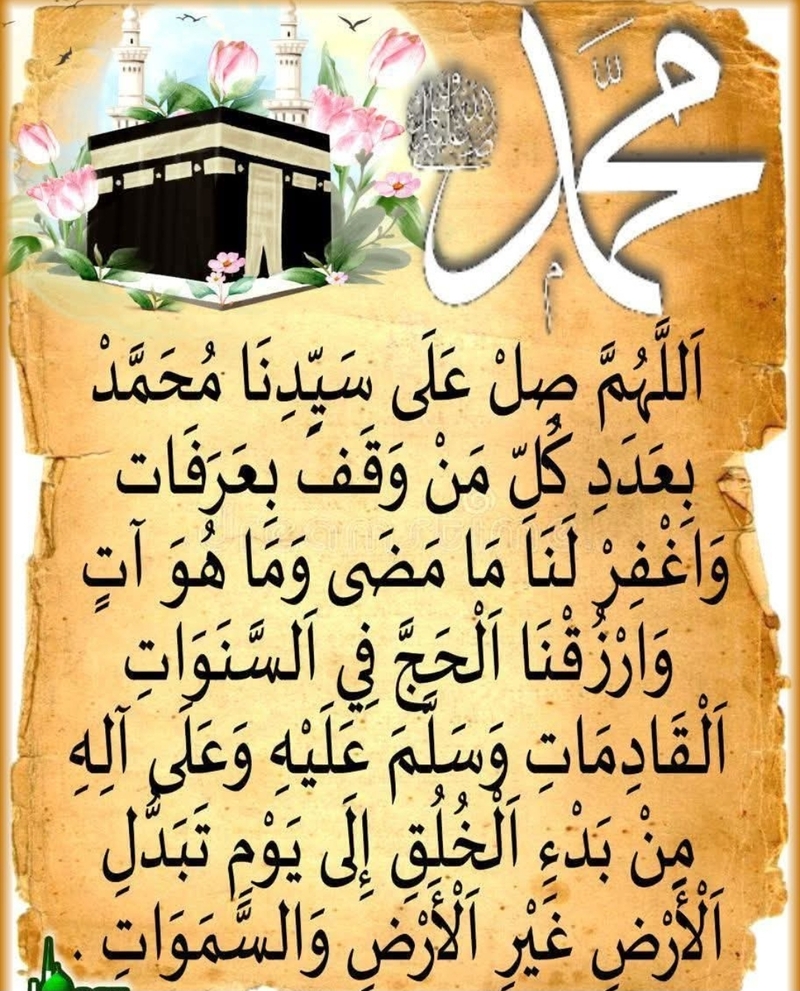 محمد
اَللَّهُمَّ صِلْ عَلَى سَيِّدِنَا مُحَمَّدْ
بِعَدَدِ كُلِّ مَنْ وَقَف بِعَرَفَات
وَاَغْفِرْ لَنَا مَا مَضَى وَمَا هُوَ آتٍ
وَارْزُقْنَا اَلْحَجَّ فِي اَلسَّنَوَاتِ
اَلْقَادِمَاتِ وَسَلَّمَ عَلَيْهِ وَعَلَى آلِهِ
مِنْ بَدْءِ اَلْخُلُقِ إِلَى يَوْمِ تَبَدُّلِ
اَلْأَرْضِ غَيْرِ اَلْأَرْضِ وَالسَّمَوَاتِ .